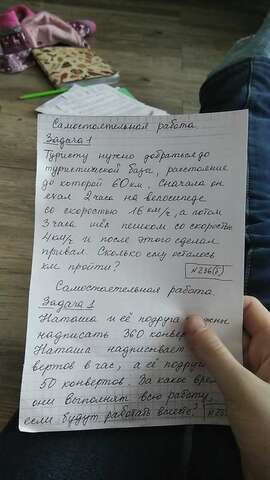 Самостоятельная работа.
Задача 1
Туристу нужно добраться до
туристической базы, расстояние
до которой 60 км. Сначала он
ехал 2 часа на велосипеде
со скоростью 16 км/ч, а потом
3 часа шёл пешком со скоростью
4 км/ч и после этого сделал
привал. Сколько ему осталось
км пройти?
№236(б)
Самостоятельная работа.
Задача 1
Наташа и её подруга
надписать 360
Наташа надписывает
в час, а её
50 конвертов. За какое
они выполнят всю работу,
если будут работать вместе?